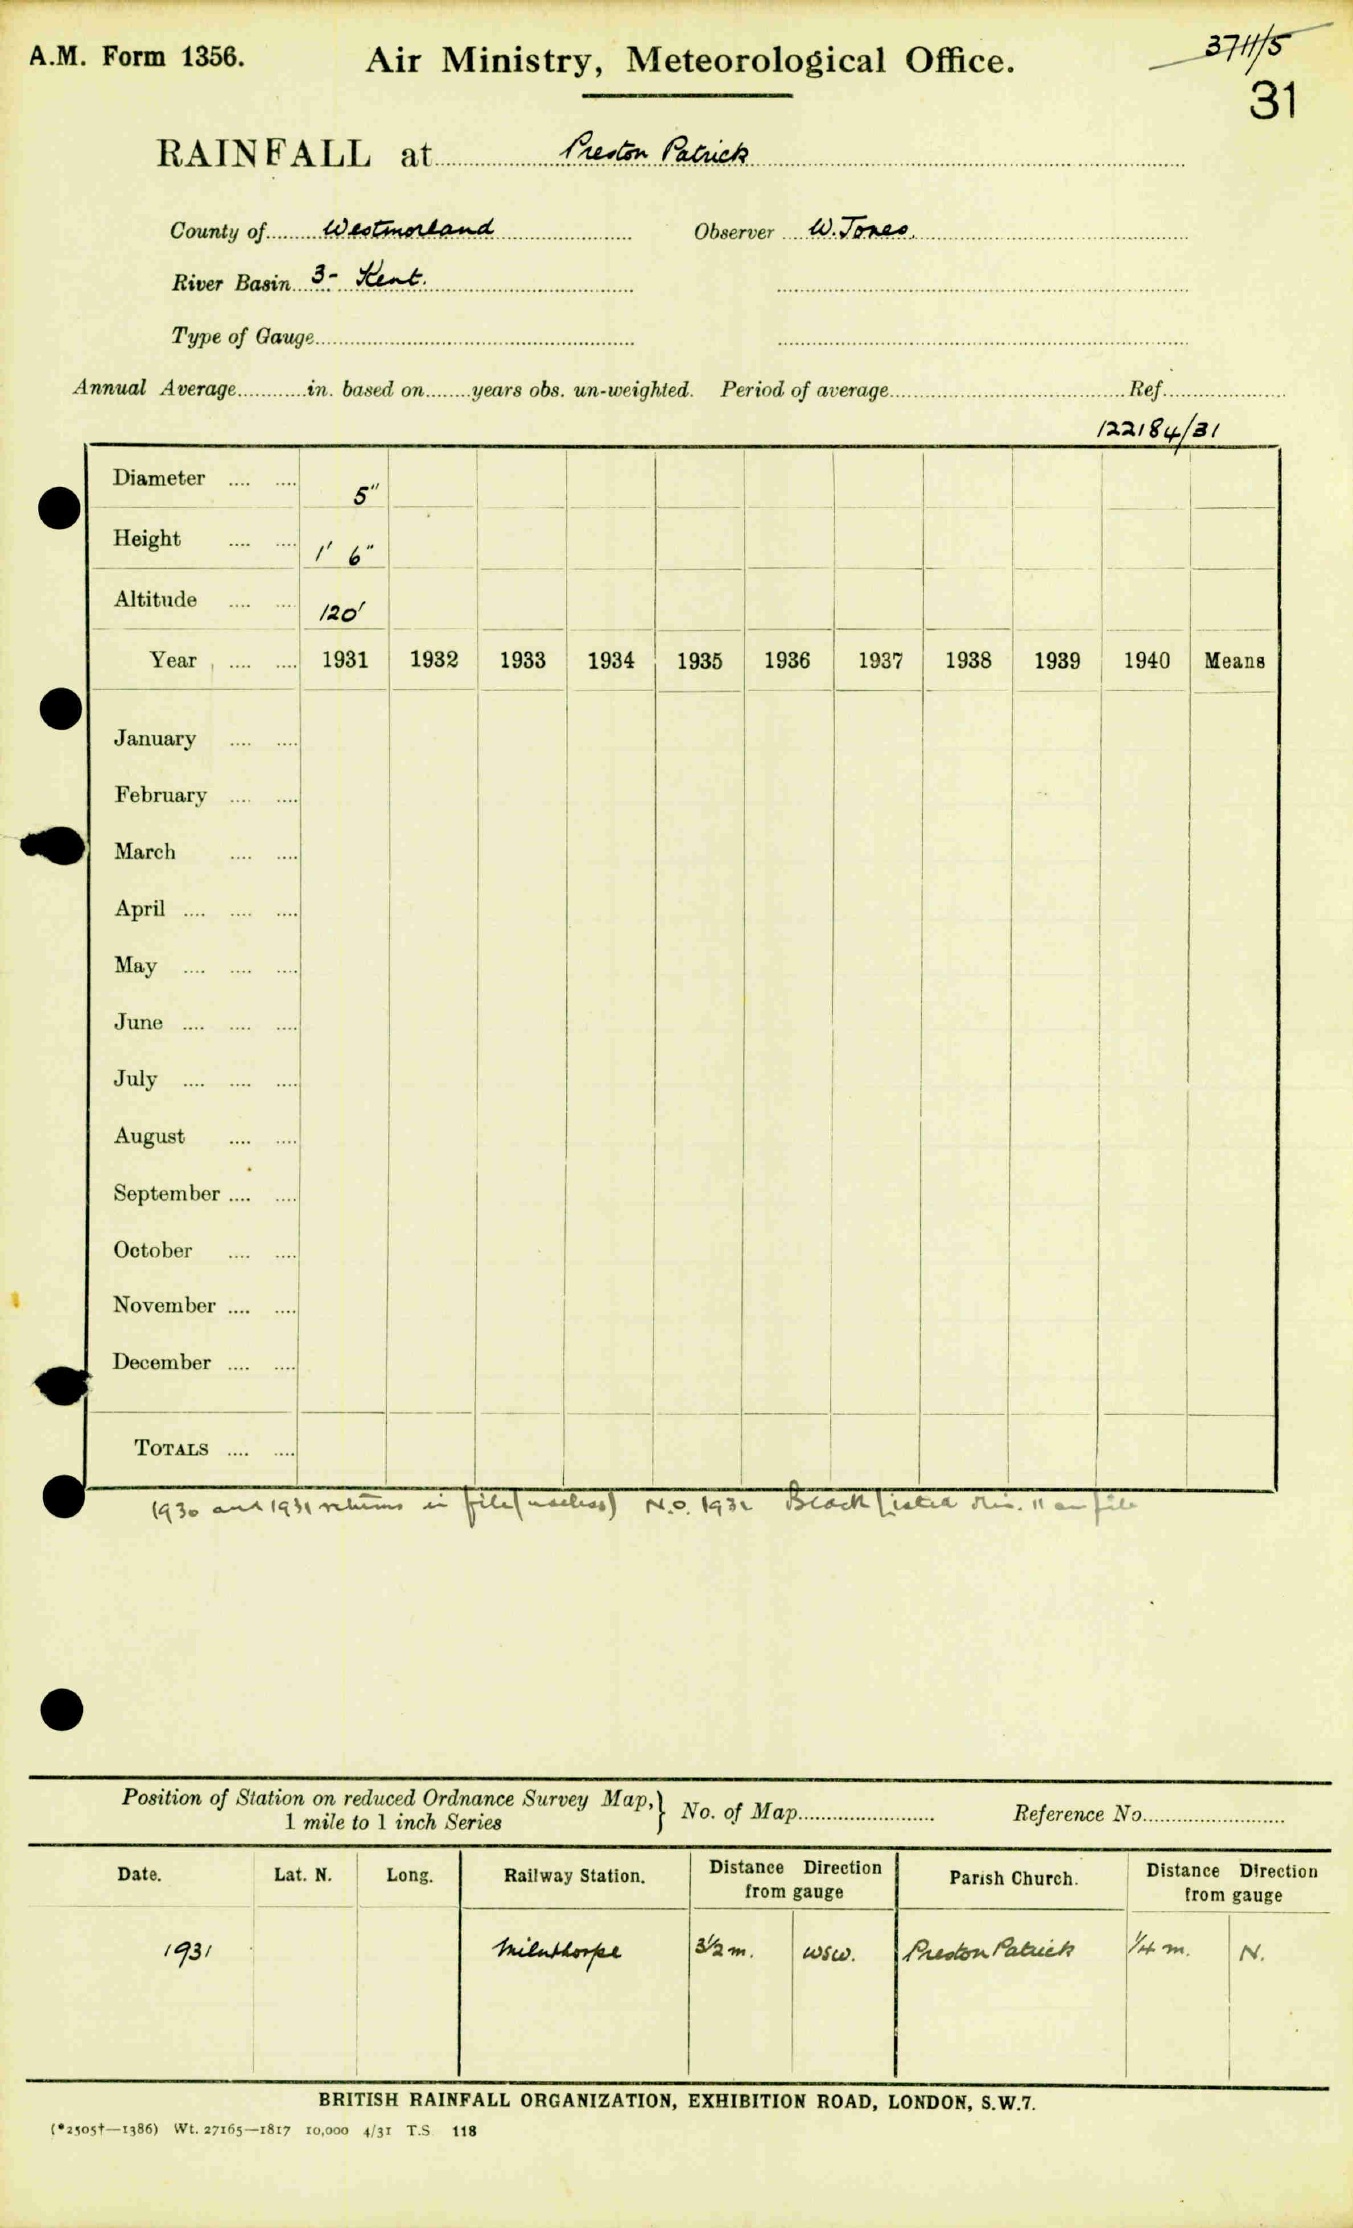 A.M. Form 1356. Air Ministry, Meteorological Office. 3711/5
31
RAINFALL at Preston Patrick
County of Westmorland Observer W. Jones.
River Basin 3- Kent.
Type of Gauge
Annual Average in. based on years obs. un-weighted. Period of average Ref.
122184/31
Diameter 5"
Height 1' 6"
Altitude 120'
Year 1931 1932 1933 1934 1935 1936 1937 1938 1939 1940 Means
January
February
March
April
May
June
July
August
September
October
November
December
TOTALS
1930 and 1931 returns in file (useless) N.O. 1932 Black Listed Min. 11 on file
Position of Station on reduced Ordnance Survey Map,} No. of Map Reference No.
1 mile to 1 inch Series
Date. Lat. N. Long. Railway Station. Distance Direction from gauge Parish Church. Distance Direction from gauge
1931 Milnthorpe 3½ m. WSW. Preston Patrick ¼ m. N.
BRITISH RAINFALL ORGANIZATION, EXHIBITION ROAD, LONDON, S.W.7.
(*2505†—1386) Wt. 27165—1817 10,000 4/31 T.S 118